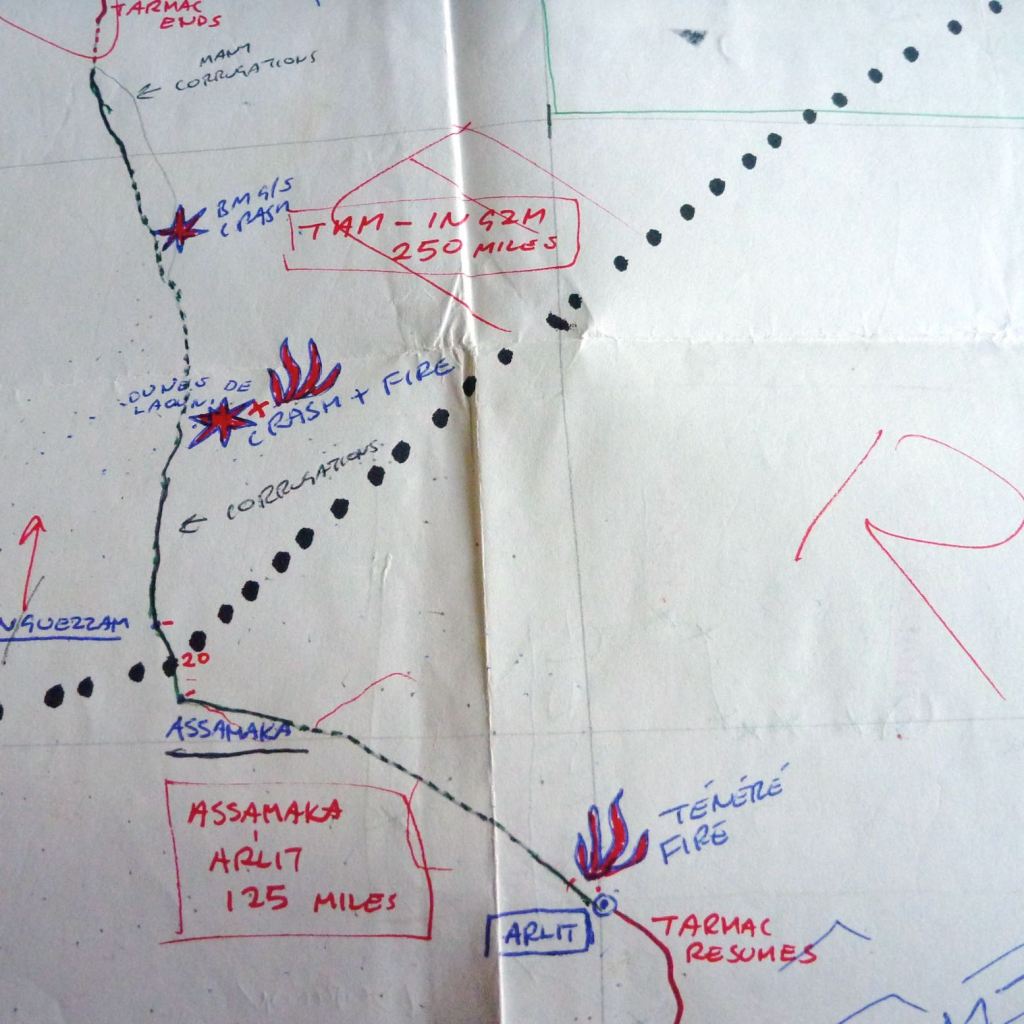 TARMAC
ENDS
MANY
CORRUGATIONS
BMG/S
CRASH
TAM - IN GZM
250 MILES
DUNES DE
LAOUNI
CRASH + FIRE
CORRUGATIONS
NGUEZZAM
20
ASSAMAKA
ASSAMAKA
-
ARLIT
125 MILES
TÉNÉRÉ
FIRE
ARLIT
TARMAC
RESUMES
R